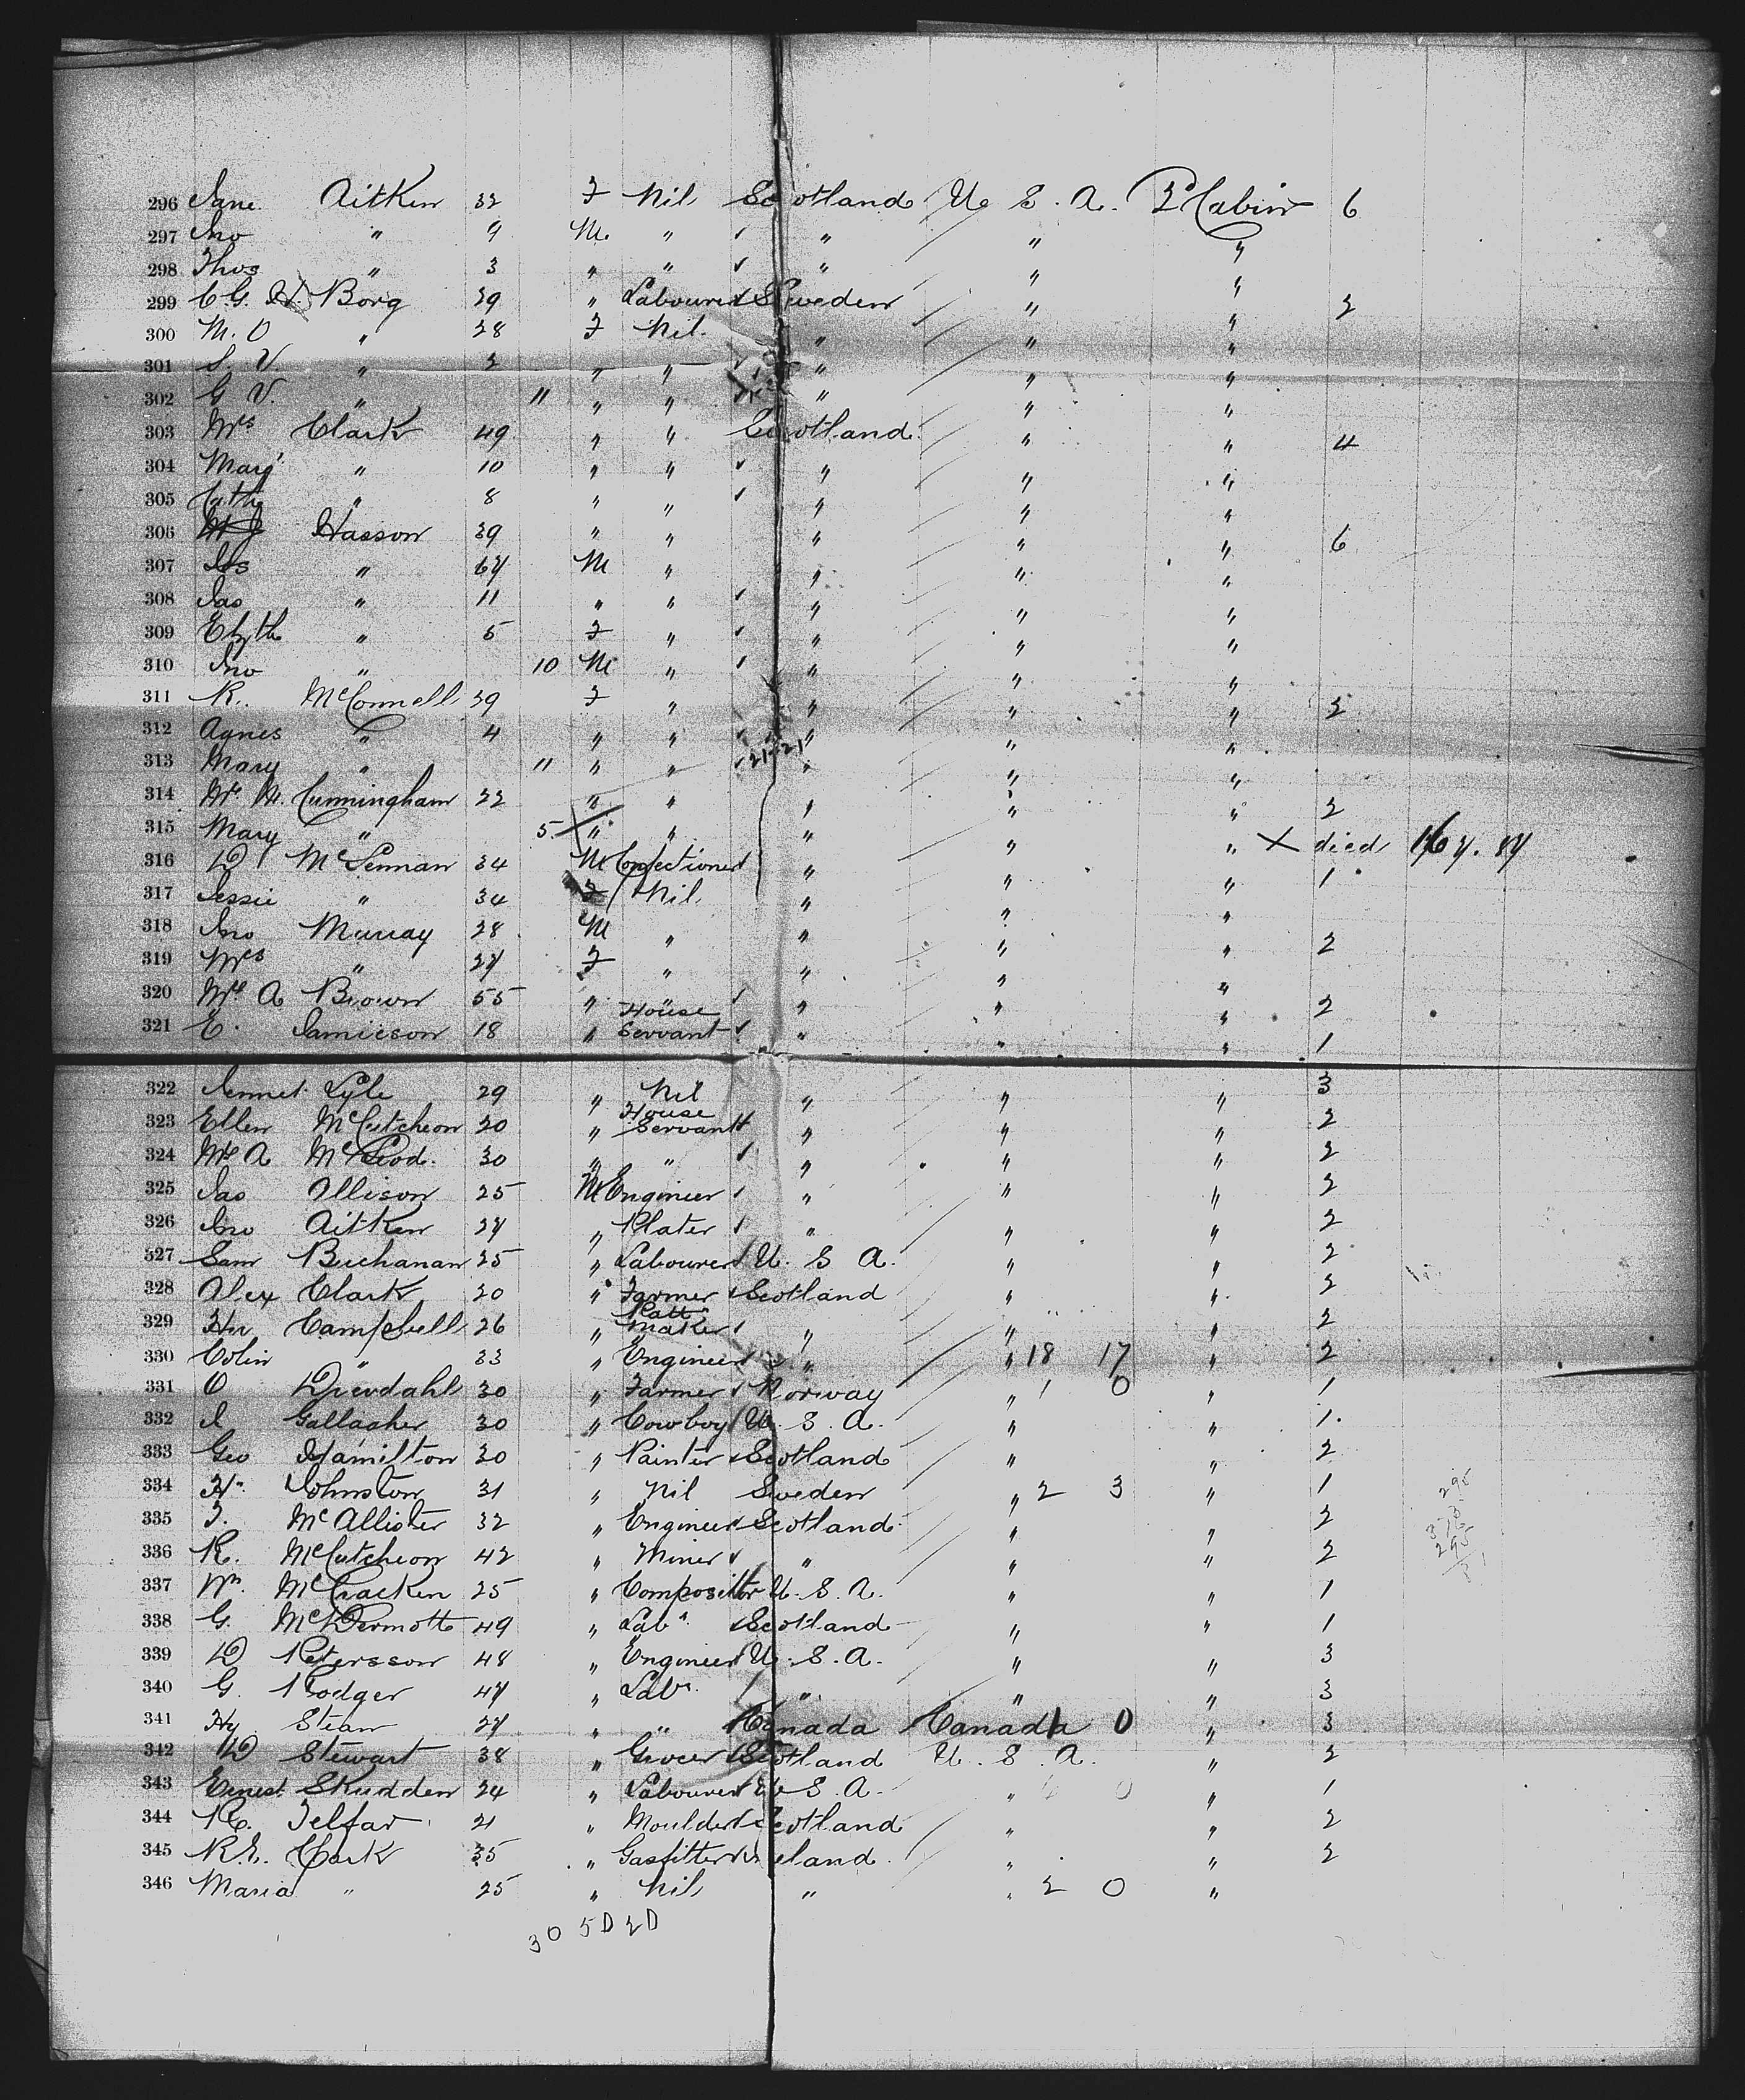 296 Jane Aitken 32 F Nil Scotland U. S. A. 2d Cabin 6
297 Jno " 9 M. " ✓ " " "
298 Thos " 3 " " ✓ " " "
299 C G. Borg 29 " Labourer Sweden " " 2
300 M. O " 28 F Nil. " " "
301 S. V. " 2 " " ✓ " " "
302 G V. " 11 " " " " "
303 Mrs Clark 49 " " Scotland " " 4
304 Margt " 10 " " ✓ " " "
305 Cath " 8 " " ✓ " " "
306 Hasson 39 " " " " " 6
307 " 67 M " " " "
308 Jas " 11 " " ✓ " " "
309 Elzth " 5 F " ✓ " " "
310 Jno " 10 M " ✓ " " "
311 R. McConnell 39 F " " " " 2
312 Agnes " 4 " " ✓ " " "
313 Mary " 11 " " ✓ 21-21 " " "
314 Mrs M. Cunningham 22 " " " " " 2
315 Mary " 5. X " " " " " X died 16 7. 87
316 D McLennan 34 M Confectioner " " " 1
317 Jessie " 34 F Nil. " " "
318 Jno Murray 28 M " " " " 2
319 Mrs " 27 F " " " "
320 Mrs A Brown 55 " " ✓ " " " 2
321 E. Jamieson 18 " House Servant ✓ " " " 1
322 Jennet Lyle 29 " Nil " " " 3
323 Ellen McCutcheon 20 " House Servant " " " 2
324 Mrs A McLeod. 30 " " ✓ " " " 2
325 Jas Allison 25 M Engineer ✓ " " " 2
326 Jno Aitken 27 " Plater ✓ " " " 2
327 Sam Buchanan 25 " Labourer U. S A. " " 2
328 Alex Clark 20 " Farmer Scotland " " 2
329 Campbell 26 " Pattn Maker ✓ " " " 2
330 Colin " 33 " Engineer " " 18 17 " 2
331 O 30 " Farmer ✓ Norway " 1 0 " 1
332 J Gallagher 30 " Cowboy U. S. A. " " 1.
333 Geo Hamilton 20 " Painter Scotland " " 2
334 Johnston 31 " Nil Sweden " 2 3 " 1
335 F. McAllister 32 " Engineer Scotland " " 2
336 R. McCutcheon 42 " Miner ✓ " " " 2
337 Wm. McCracken 25 " Compositor U. S. A. " " 1
338 G. McDermott 49 " Labr. Scotland " " 1
339 D Petersson 48 " Engineer U. S. A. " " 3
340 G. Rodger 47 " Labr. " " " 3
341 Hy Stean 27 " " Canada Canada 1 0 " 3
342 D Stewart 38 " Grocer Scotland U. S. A. " 2
343 Ernest Skudden 24 " Labourer U S. A. " 0 " 1
344 Telfar 21 " Moulder Scotland " " 2
345 R.E. Clark 35 " Gasfitter Ireland " " 2
346 Maria " 25 " Nil " " 2 0 "
30 5D 2D